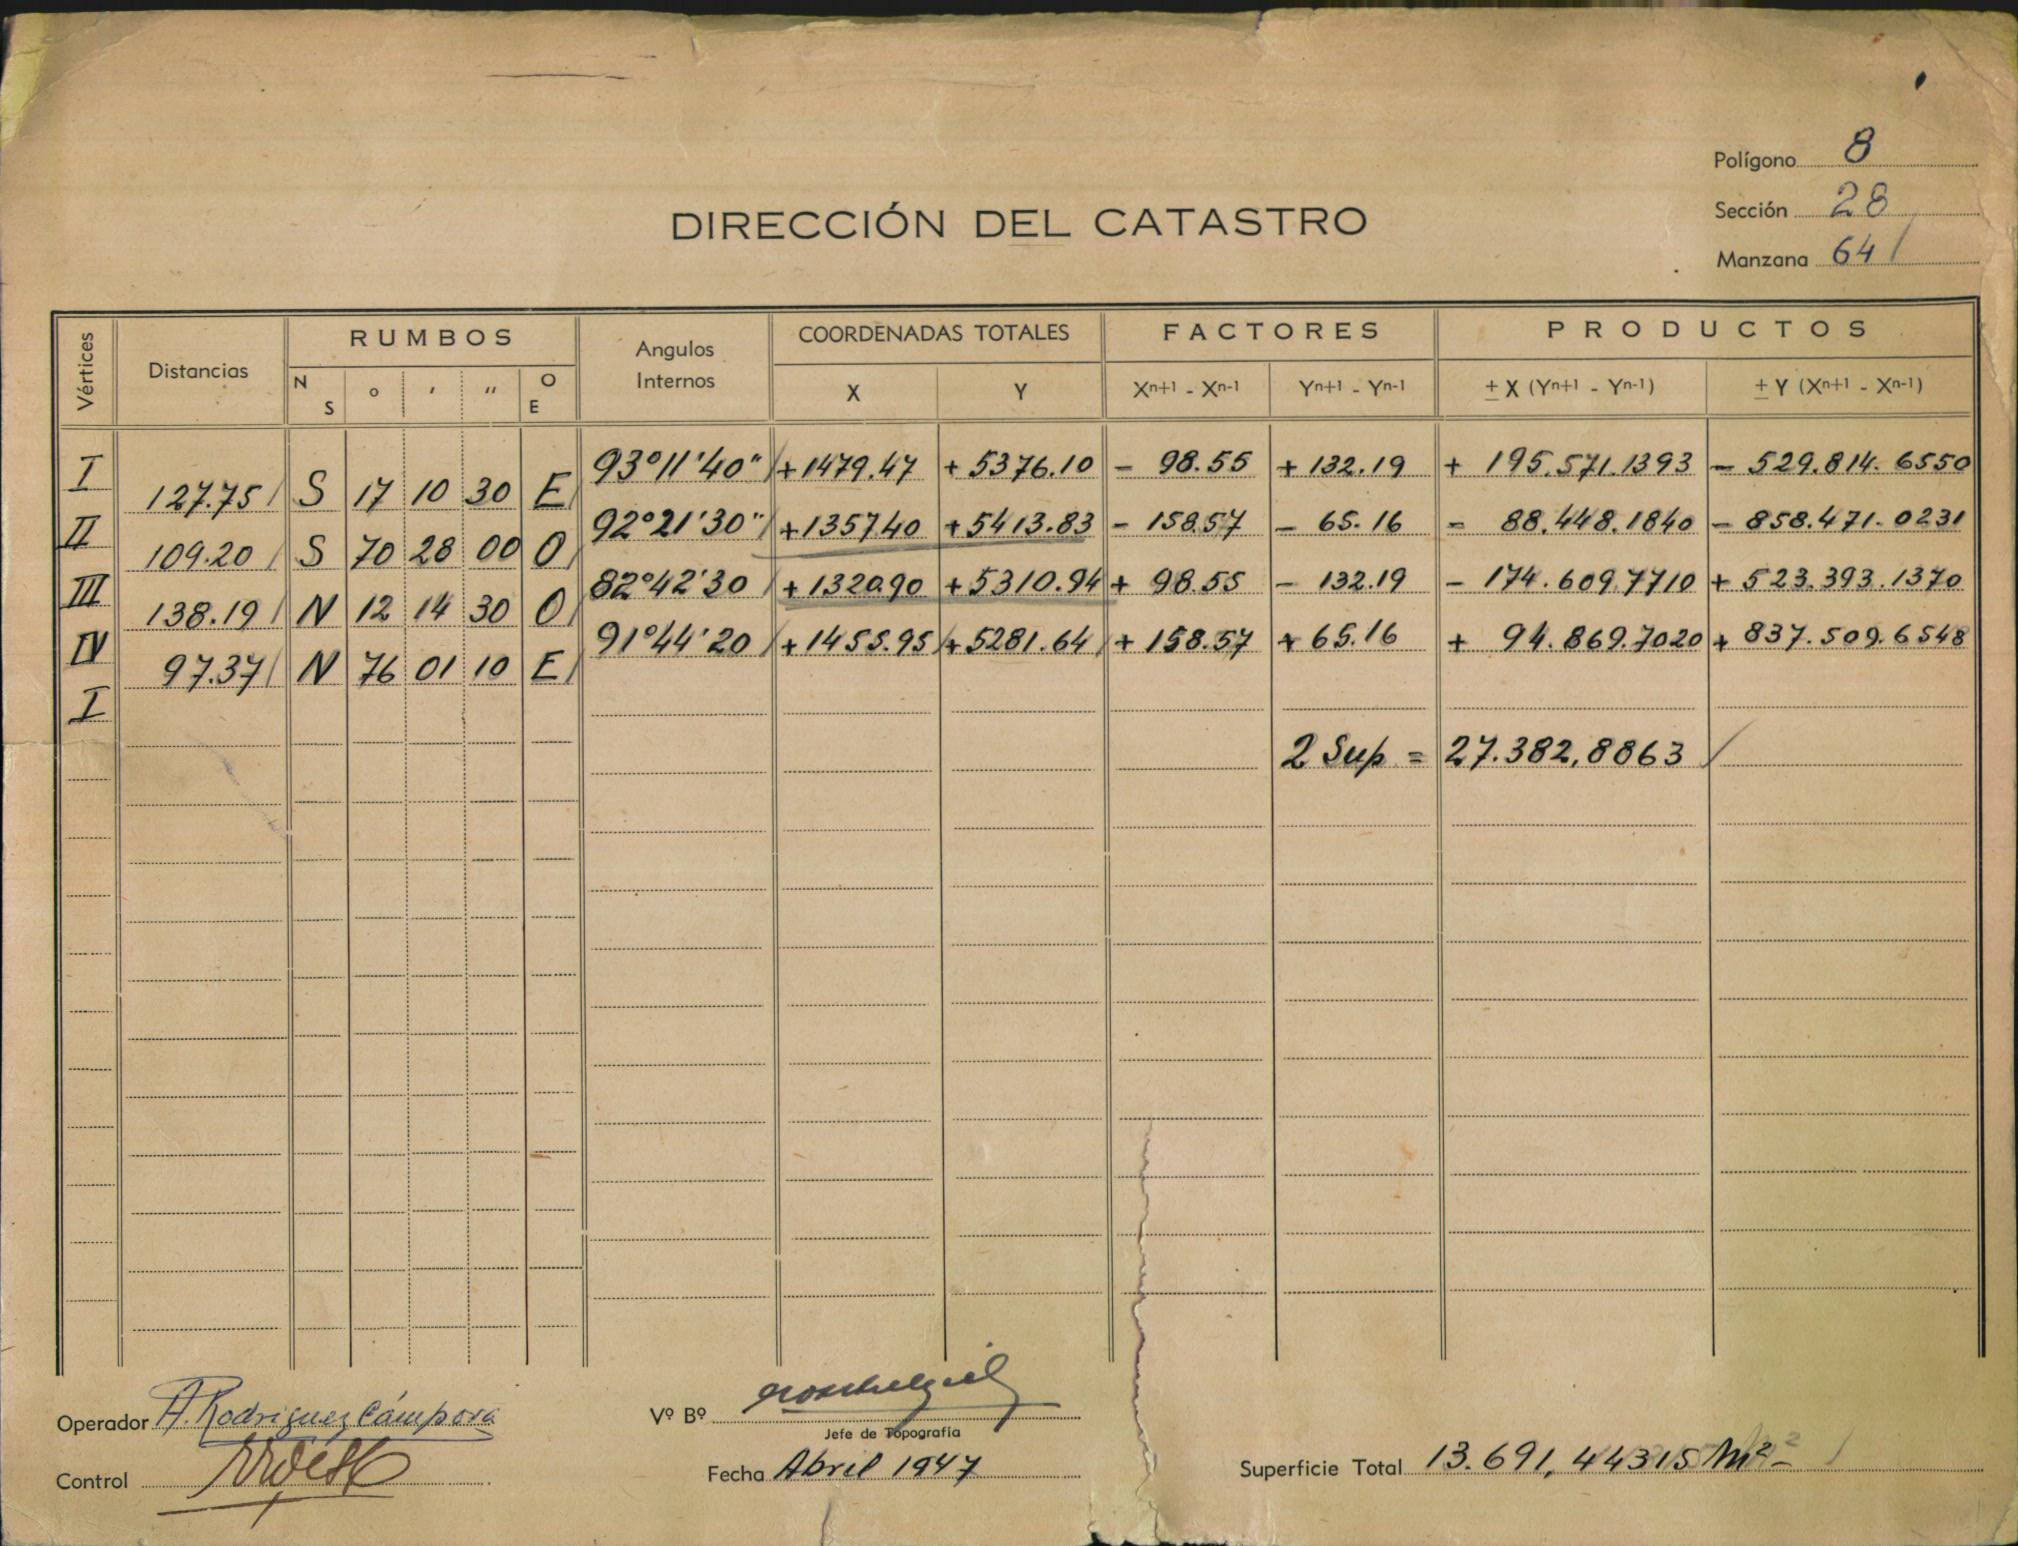 Polígono 8
Sección 28
Manzana 64
DIRECCIÓN DEL CATASTRO
Vértices Distancias RUMBOS Angulos Internos COORDENADAS TOTALES FACTORES PRODUCTOS
N S ° ′ ″ O E X Y Xn+1 - Xn-1 Yn+1 - Yn-1 ± X (Yn+1 - Yn-1) ± Y (Xn+1 - Xn-1)
I 93°11'40" +1479.47 +5376.10 - 98.55 +132.19 + 195.571.1393 - 529.814.6550
127.75 S 17 10 30 E
II 92°21'30" +1357.40 +5413.83 - 158.57 - 65.16 - 88.448.1840 - 858.471.0231
109.20 S 70 28 00 O
III 82°42'30 +1320.90 +5310.94 + 98.55 - 132.19 - 174.609.7710 + 523.393.1370
138.19 N 12 14 30 O
IV 91°44'20 +1455.95 +5281.64 + 158.57 + 65.16 + 94.869.7020 + 837.509.6548
97.37 N 76 01 10 E
I
2 Sup = 27.382,8863
Operador A. Rodriguez Cámpora
Vº Bº
Jefe de Topografía
Control
Fecha Abril 1947
Superficie Total 13.691,44315 M²